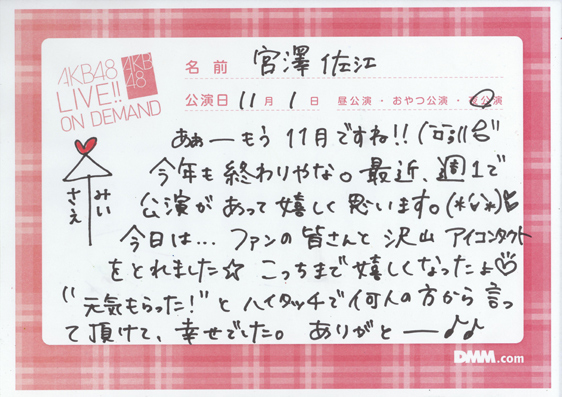 AKB48
LIVE!!
ON DEMAND
AKB
48
名前 宮澤佐江
公演日 11月1日 昼公演・おやつ公演・夜公演
あぁーもう 11月ですね!!
今年も終わりやな。最近、週1で
公演があって嬉しく思います。(*'v'*)
今日は… ファンの皆さんと 沢山 アイコンタクト
をとれました☆ こっちまで嬉しくなったよ
"元気もらった!"と ハイタッチで何人の方から言っ
て頂けて、幸せでした。 ありがとー♪♪
みい
さえ
DMM.com